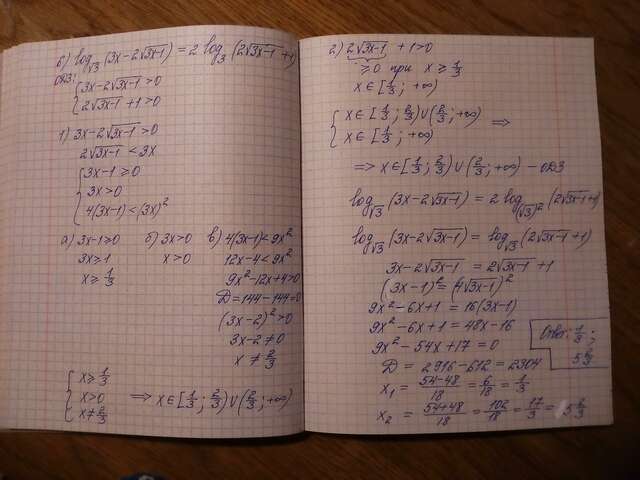 б) log√3 (3x-2√3x-1) = 2 log3 (2√3x-1 +1)
ОДЗ: { 3x-2√3x-1 >0
2√3x-1 +1>0
1) 3x-2√3x-1 >0
2√3x-1 < 3x
{ 3x-1 ≥ 0
3x>0
4(3x-1)<(3x)²
а) 3x-1≥0 б) 3x>0 в) 4(3x-1)<9x²
3x≥1 x>0 12x-4<9x²
x≥1/3 9x²-12x+4>0
D=144-144=0
(3x-2)²>0
3x-2≠0
x≠2/3
{ x≥1/3
x>0 ⇒ x∈[1/3; 2/3)∪(2/3; +∞)
x≠2/3
2) 2√3x-1 +1>0
≥0 при x≥1/3
x∈[1/3; +∞)
{ x∈[1/3; 2/3)∪(2/3; +∞) ⇒
x∈[1/3; +∞)
⇒ x∈[1/3; 2/3)∪(2/3; +∞) - ОДЗ
log√3 (3x-2√3x-1) = 2 log(√3)² (2√3x-1+1)
log√3 (3x-2√3x-1) = log√3 (2√3x-1+1)
3x-2√3x-1 = 2√3x-1 +1
(3x-1)² = (4√3x-1)²
9x²-6x+1 = 16(3x-1)
9x²-6x+1 = 48x-16
9x²-54x+17=0
D = 2916-612=2304
x1 = 54-48/18 = 6/18 = 1/3
x2 = 54+48/18 = 102/18 = 17/3 = 5 2/3
Ответ: 1/3;
5 2/3